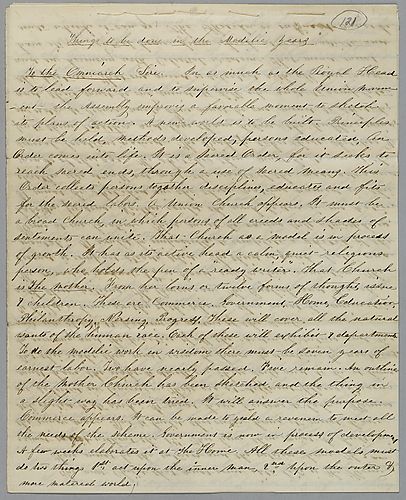 121
Things to be done in the Modelic Years
To the Omniarch Sire. In as much as the Royal Head
is to lead forward and to supervise the whole
ent the Assembly improves a favorable moment to sketch
its plans of action. A new world is to be built. Principles
must be held, methods developed, persons educated, An
Order comes into life. It is a Sacred Order, for it seeks to
reach sacred ends, through a use of sacred means. This
Order collects persons together disciplines, educates and fits
for the sacred labors. A Union Church appears. It must be
a broad Church, in which persons of all creeds and shades of
sentiments can unite. That Church as a model is in process
of growth. It has as its active head a calm, quiet religious
person, who holds the pen of a ready writer. That Church
is The Mother. From her loins or twelve forms of thought,
& children. These are Commerce, Government, Home, Education,
Philanthropy, Nursing, Progress. These will cover all the natural
wants of the human race. Each of these will exhibit departments.
To do the modelic work in wisdom there must be seven years of
earnest labor. Two have nearly passed, Five remain. An outline
of the Mother Church has been sketched and the thing in
a slight way has been tried. It will answer the purpose.
Commerce appears. It can be made to yield a revenue to meet all
the needs of the scheme. Government is now in process of development,
A few weeks elaborates it at The Home. All these models must
do two things 1st act upon the inner man, 2nd upon the outer &
more material world;